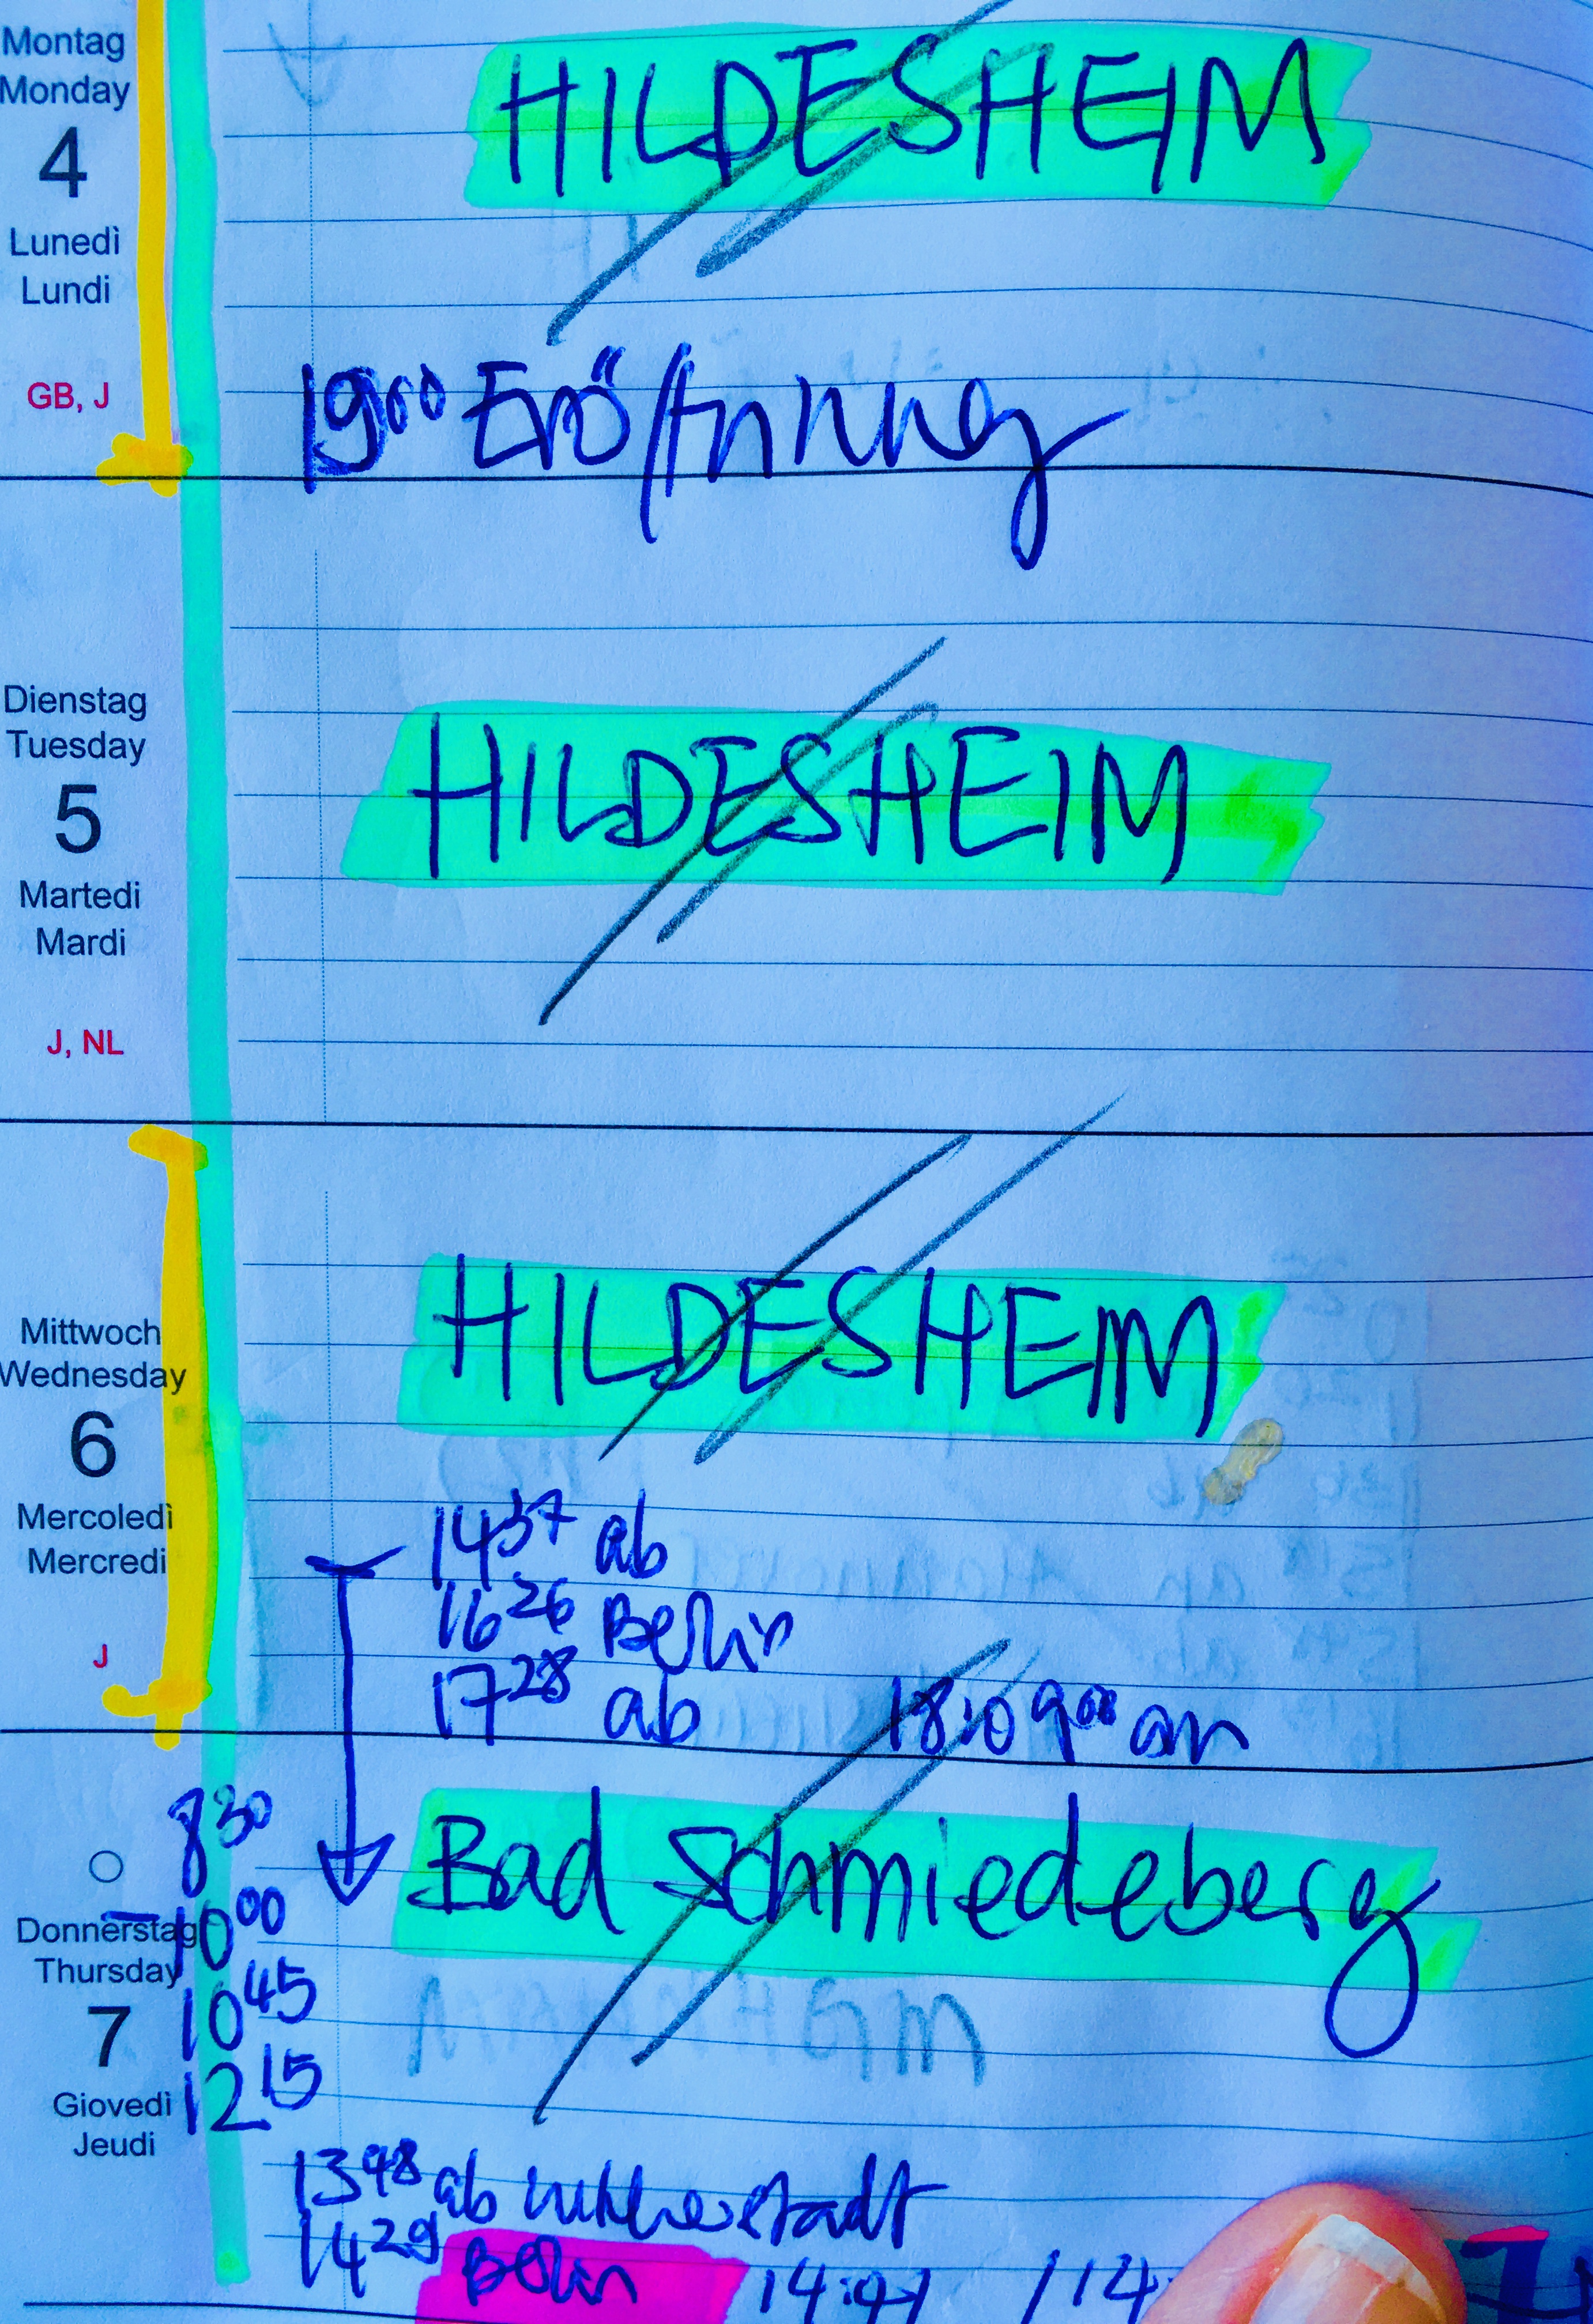 Montag
Monday
4
Lunedì
Lundi
GB, J
HILDESHEIM
19⁰⁰ Eröffnung
Dienstag
Tuesday
5
Martedi
Mardi
J, NL
HILDESHEIM
Mittwoch
Wednesday
6
Mercoledì
Mercredi
J
HILDESHEIM
14³⁷ ab
16²⁶ Berlin
17²⁸ ab
an
Donnerstag
Thursday
7
Giovedì
Jeudi
8³⁰
10⁰⁰
10⁴⁵
12¹⁵
Bad Schmiedeberg
13⁴⁸ ab Lutherstadt
14²⁹ Berlin